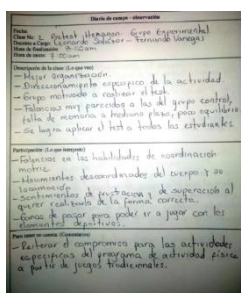 Diario de campo - observación
Fecha:
Clase No: 2 Pretest Hexagon. Grupo Experimental
Docente a Cargo: Leonardo Salazar - Fernando Vanegas
Hora de finalización: 9:00 am
Hora de inicio: 7:00 am
Descripción de la clase: (Lo que veo)
- Mejor organización.
- Direccionamiento específico de la actividad.
- Grupo motivado a realizar el test.
- Falencias muy parecidas a las del grupo control,
falta de memoria a mediano plazo, poco equilibrio
- Se logra aplicar el test a todos los estudiantes
Participación: (Lo que interpreto)
- Falencias en las habilidades de coordinación
motriz.
- Movimientos descoordinados del cuerpo y su
locomoción
- Sentimientos de frustración y de superación al
querer realizarlo de la forma correcta.
- Ganas de pasar para poder ir a jugar con los
elementos deportivos.
Para tener en cuenta (Comentarios)
- Reiterar el compromiso para las actividades
específicas del programa de actividad física
a partir de juegos tradicionales.